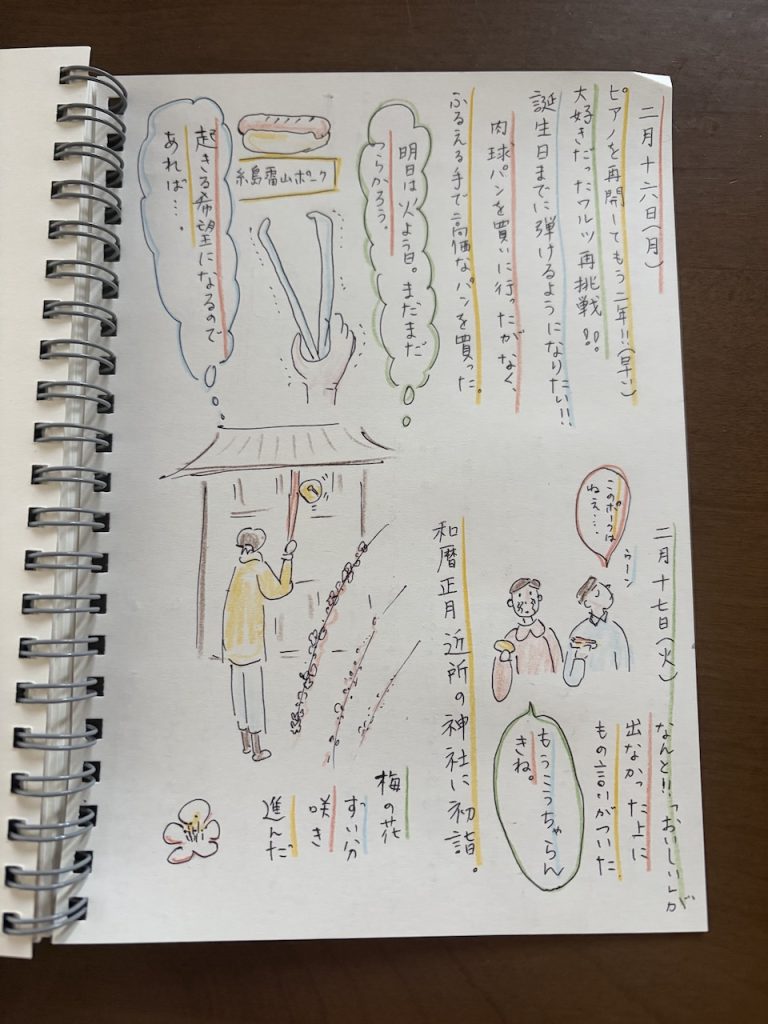 二月十六日(月)
ピアノを再開してもう二年!!(早い)
大好きだったワルツ再挑戦!!
誕生日までに弾けるようになりたい!!
肉球パンを買いに行ったがなく、
ふるえる手で高価なパンを買った。
明日は火よう日。まだまだ
つらかろう。
糸島雷山ポーク
起きる希望になるので
あれば…。
二月十七日(火)
なんと!!「おいしい」が
出なかった上に
もの言いがついた
このポークは
ねえ…
うーン
もうこうちゃらん
きね。
和暦正月 近所の神社に初詣。
梅の花
ずい分
咲き
進んだ